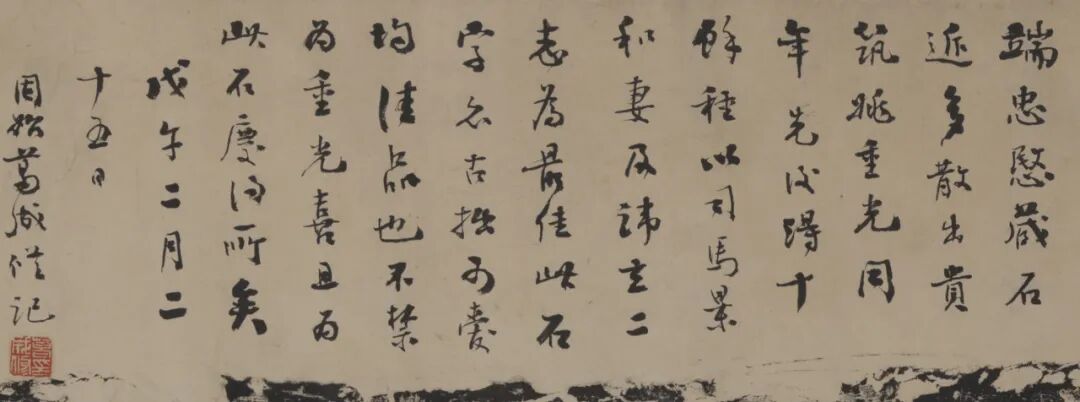 端忠愍藏石
近多散出貴
筑姚重光同
年先後得十
餘種以司馬景
和妻及諱玄二
志為最佳此石
字亦古拙可愛
均佳品也不禁
為重光喜且為
此石慶得所矣
戊午二月二
十五日
固始葛成修記